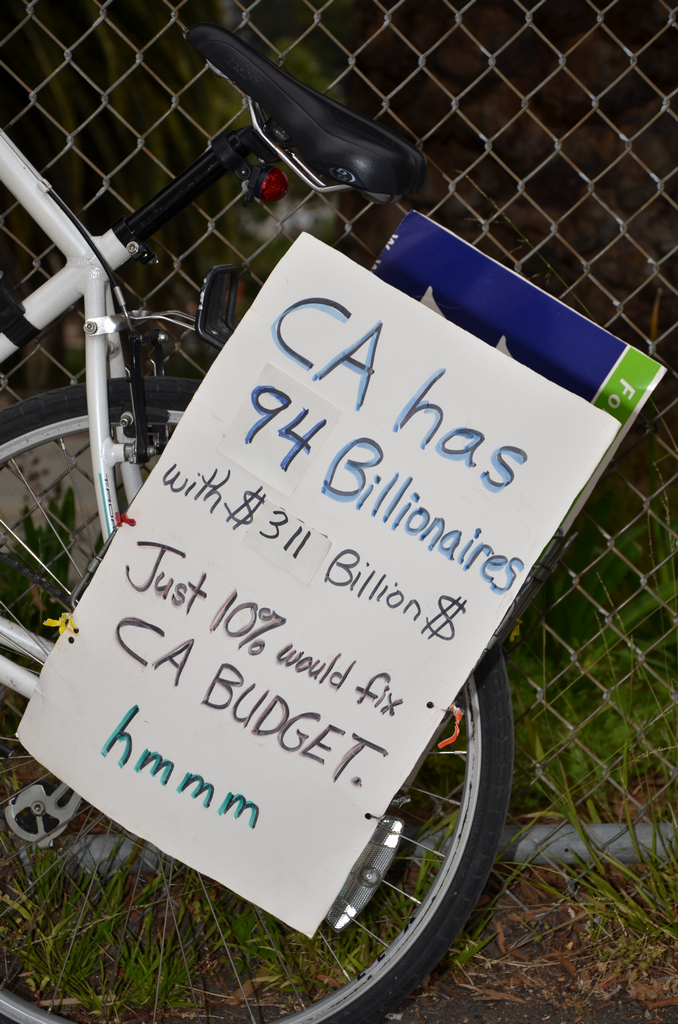 CA has
94 Billionaires
with $311 Billion $
Just 10% would fix
CA BUDGET.
hmmm
Fo